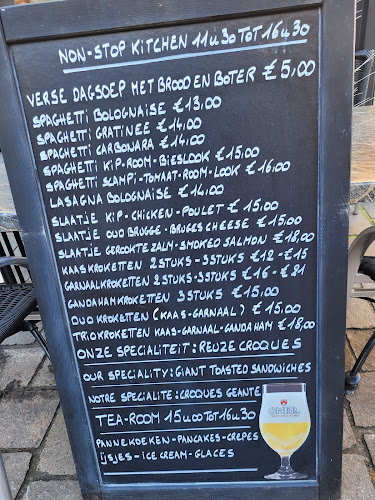 NON-STOP KITCHEN 11u30 TOT 16u30
VERSE DAGSOEP MET BROOD EN BOTER €5,00
SPAGHETTI BOLOGNAISE €13,00
SPAGHETTI GRATINEE €14,00
SPAGHETTI CARBONARA €14,00
SPAGHETTI KIP-ROOM-BIESLOOK €15,00
SPAGHETTI SCAMPI-TOMAAT-ROOM-LOOK €16,00
LASAGNA BOLOGNAISE €14,00
SLAATJE KIP-CHICKEN-POULET €15,00
SLAATJE OUD BRUGGE-BRUGES CHEESE €15,00
SLAATJE GEROOKTE ZALM-SMOKED SALMON €18,00
KAASKROKETTEN 2 STUKS-3 STUKS €12-€15
GARNAALKROKETTEN 2 STUKS-3 STUKS €16-€21
GANDAHAMKROKETTEN 3 STUKS €15,00
DUO KROKETTEN (KAAS-GARNAAL) €15,00
TRIO KROKETTEN KAAS-GARNAAL-GANDAHAM €18,00
ONZE SPECIALITEIT: REUZE CROQUES
OUR SPECIALITY: GIANT TOASTED SANDWICHES
NOTRE SPECIALITÉ: CROQUES GEANTE
TEA-ROOM 15u00 TOT 16u30
PANNEKOEKEN-PANCAKES-CREPES
IJSJES-ICE CREAM-GLACES
OMER.